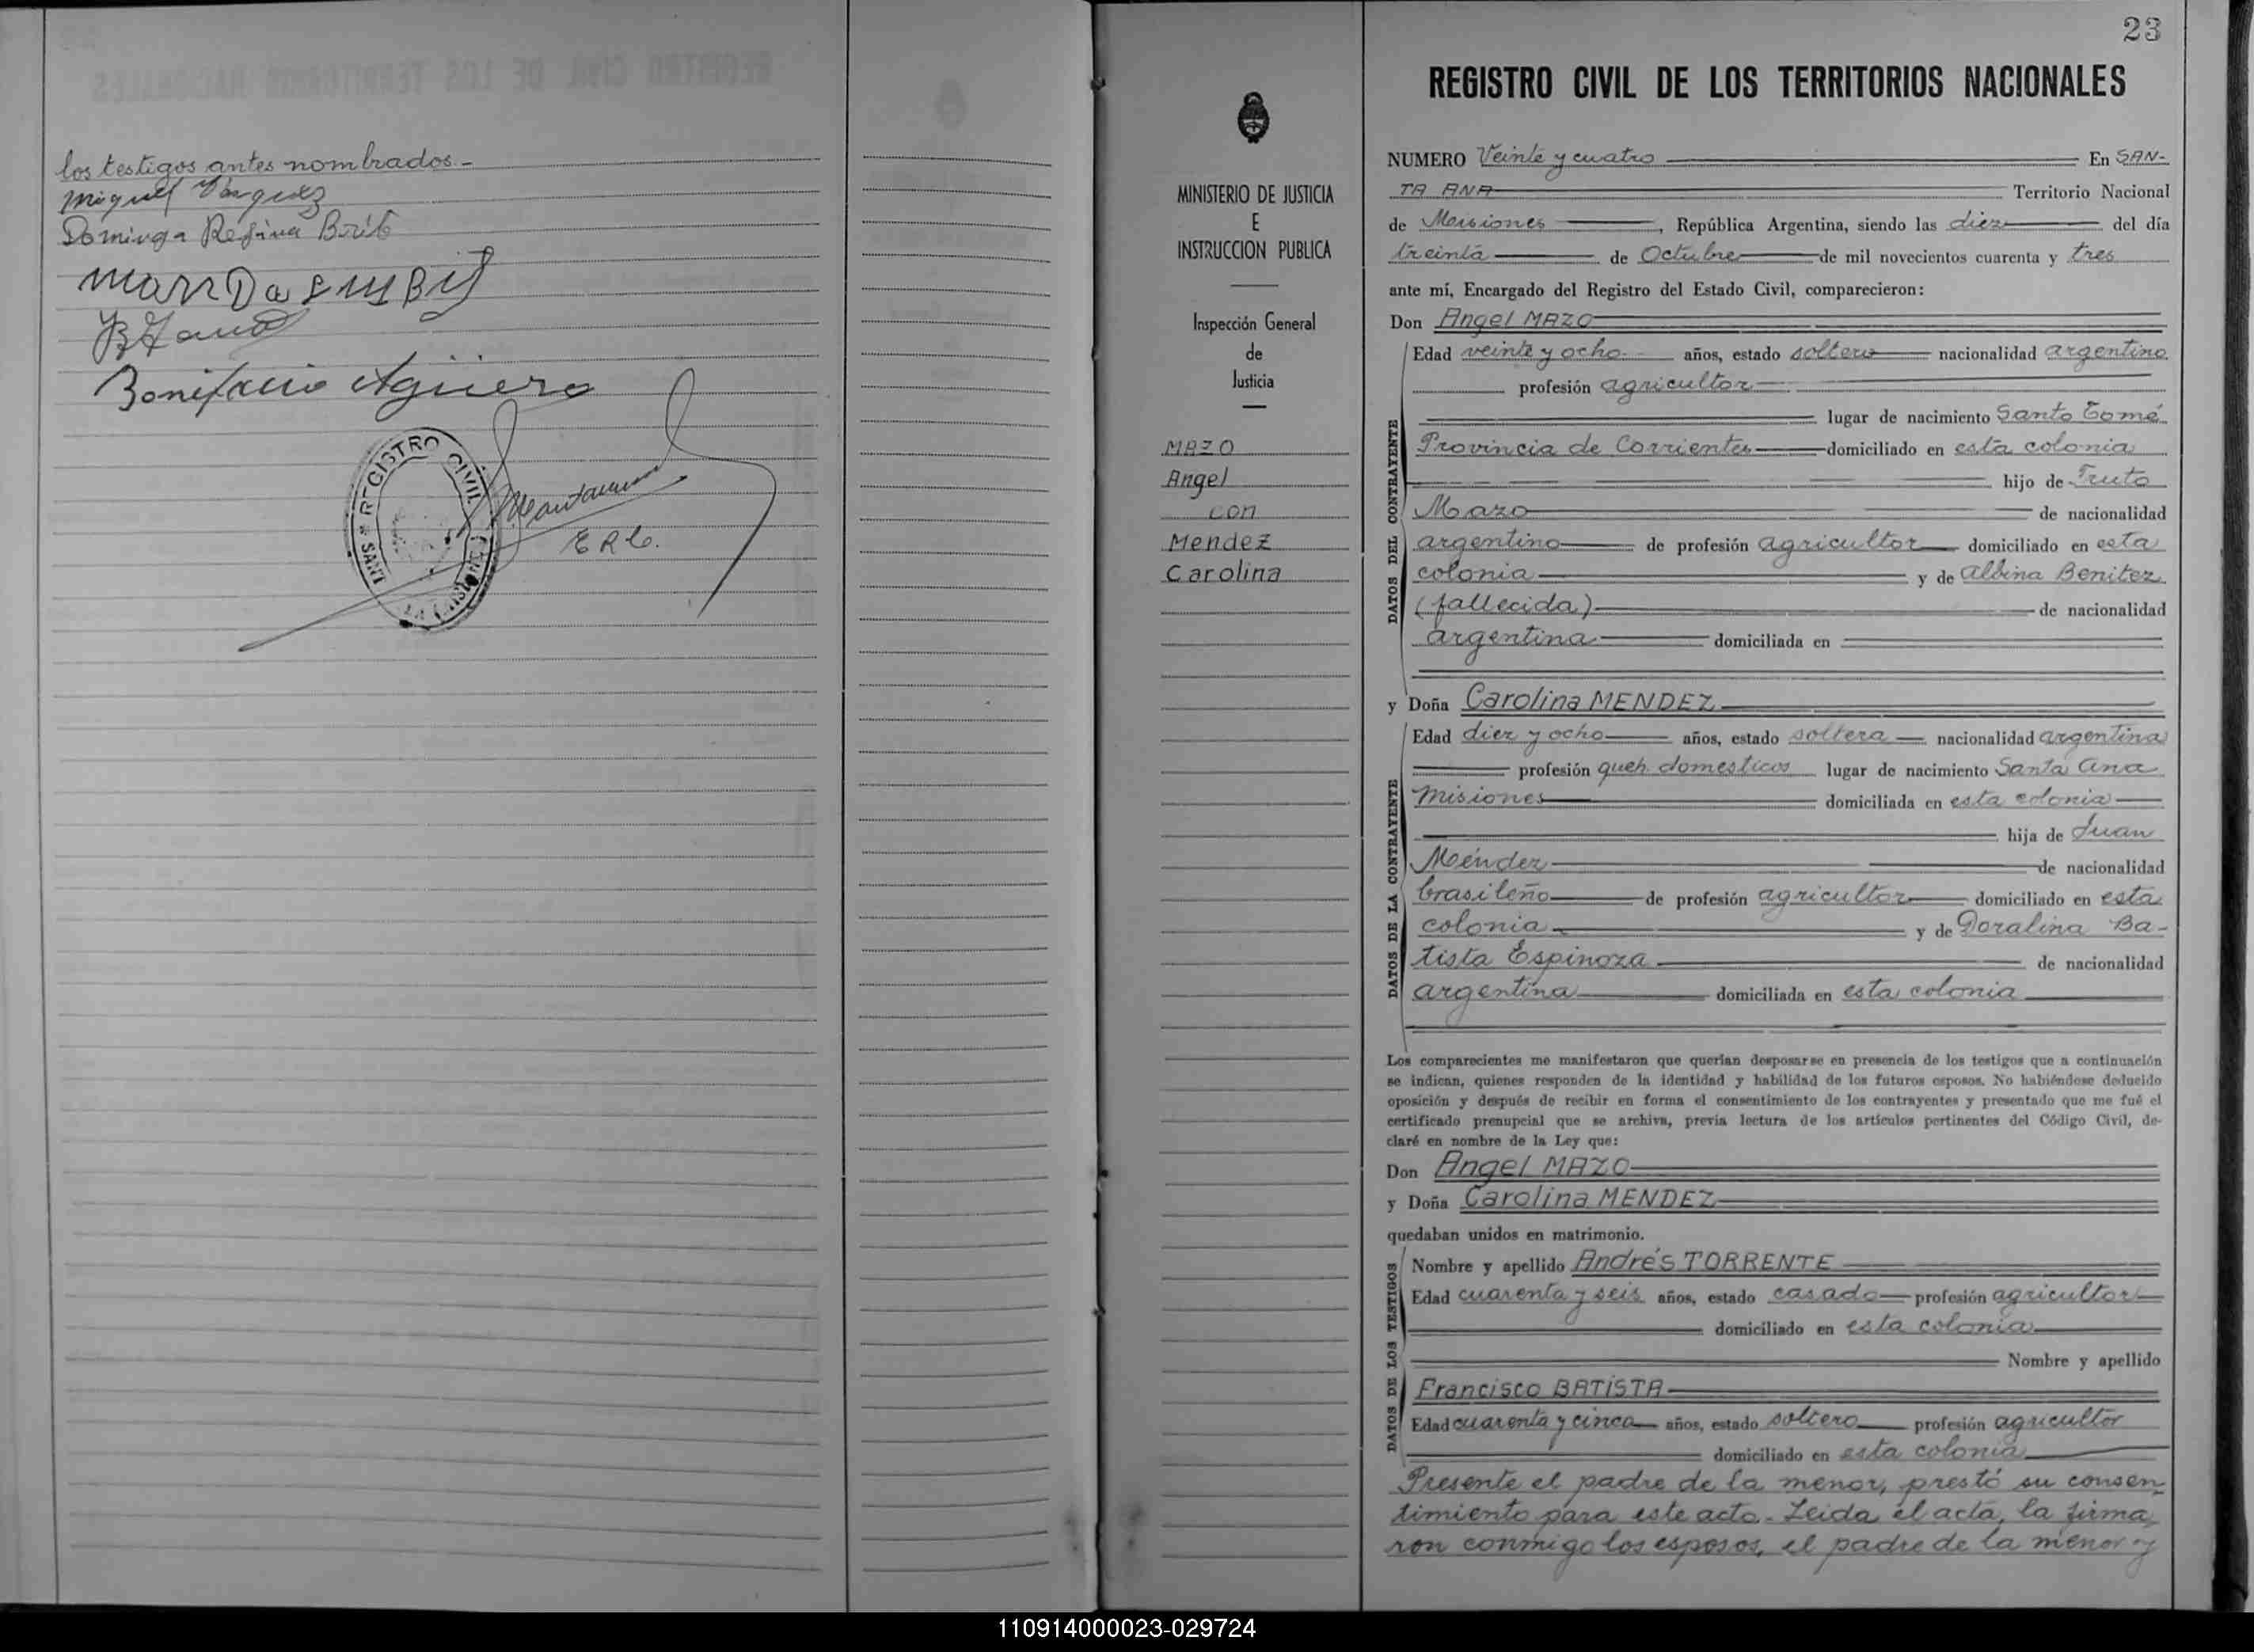 los testigos antes nombrados.-
Miguel Vásquez
Dominga Regina Brit
Bonifacio Agüero
REGISTRO CIVIL
SANTA ANA (MISIONES)
E R C.
23
REGISTRO CIVIL DE LOS TERRITORIOS NACIONALES
MINISTERIO DE JUSTICIA
E
INSTRUCCION PUBLICA
Inspección General
de
Justicia
MAZO
Angel
con
Mendez
Carolina
NUMERO Veinte y cuatro En SAN-
TA ANA Territorio Nacional
de Misiones, República Argentina, siendo las diez del día
treinta de Octubre de mil novecientos cuarenta y tres
ante mí, Encargado del Registro del Estado Civil, comparecieron:
Don Angel MAZO
DATOS DEL CONTRAYENTE
Edad veinte y ocho años, estado soltero nacionalidad argentino
profesión agricultor
lugar de nacimiento Santo Tomé
Provincia de Corrientes domiciliado en esta colonia
hijo de Fruto
Mazo de nacionalidad
argentino de profesión agricultor domiciliado en esta
colonia y de Albina Benitez
(fallecida) de nacionalidad
argentina domiciliada en
y Doña Carolina MENDEZ
DATOS DE LA CONTRAYENTE
Edad diez y ocho años, estado soltera nacionalidad argentina
profesión queh. domesticos lugar de nacimiento Santa Ana
Misiones domiciliada en esta colonia
hija de Juan
Méndez de nacionalidad
brasileño de profesión agricultor domiciliado en esta
colonia y de Doralina Ba-
tista Espinoza de nacionalidad
argentina domiciliada en esta colonia
Los comparecientes me manifestaron que querían desposarse en presencia de los testigos que a continuación
se indican, quienes responden de la identidad y habilidad de los futuros esposos. No habiéndose deducido
oposición y después de recibir en forma el consentimiento de los contrayentes y presentado que me fué el
certificado prenupcial que se archiva, previa lectura de los artículos pertinentes del Código Civil, de-
claré en nombre de la Ley que:
Don Angel MAZO
y Doña Carolina MENDEZ
quedaban unidos en matrimonio.
DATOS DE LOS TESTIGOS
Nombre y apellido Andrés TORRENTE
Edad cuarenta y seis años, estado casado profesión agricultor
domiciliado en esta colonia
Nombre y apellido
Francisco BATISTA
Edad cuarenta y cinco años, estado soltero profesión agricultor
domiciliado en esta colonia
Presente el padre de la menor, prestó su consen-
timiento para este acto.- Leida el acta, la firma-
ron conmigo los esposos, el padre de la menor y
110914000023-029724